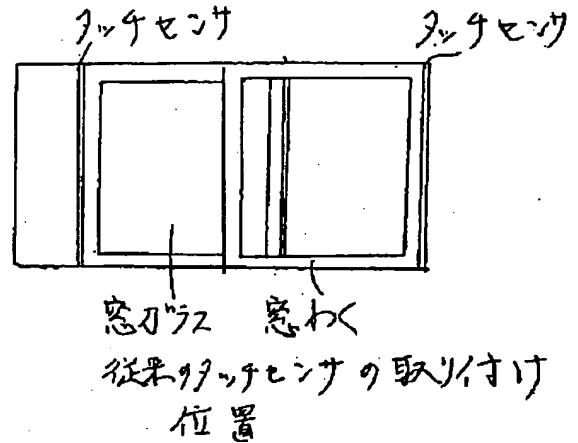 タッチセンサ
タッチセンサ
窓ガラス
窓わく
従来のタッチセンサの取り付け
位置